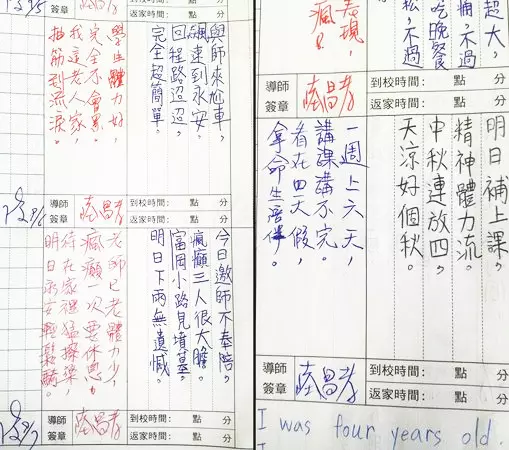 導師簽章
到校時間： 點 分
返家時間： 點 分
與師來尬車，
飆速到永安。
回程路迢迢，
完全超簡單。
學生體力好，
完全不會累。
我這老人家，
抽筋到流淚。
導師簽章
到校時間： 點 分
返家時間： 點 分
今日邀師不奉陪。
瘋癲三人很大膽。
富岡小路見墳墓。
明日下雨無遺憾。
老師已老體力少，
瘋癲一次要休息。
待在家裡猛擦澡，
明日永安輕鬆騎。
導師簽章
到校時間： 點 分
返家時間： 點 分
超大，
痛，不過
吃晚餐
松，不過
表現，
瘋！
導師簽章
陸昌孝
到校時間： 點 分
返家時間： 點 分
明日補上課，
精神體力流。
中秋連放四，
天涼好個秋。
一週上六天，
講課講不完。
看在四天假，
拿命
導師簽章
陸昌孝
到校時間： 點 分
返家時間： 點 分
I was four years old.